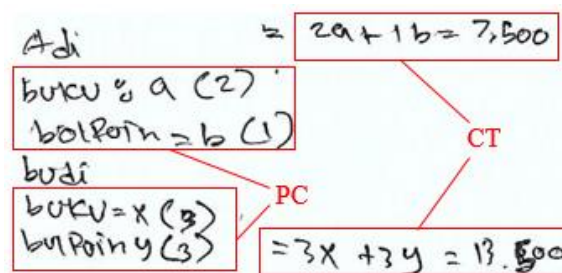 Adi = 2a + 1b = 7,500
buku : a (2)
bolPoin = b (1)
CT
budi
PC
buku = x (3)
bulPoin y (3)
= 3x + 3y = 13.500